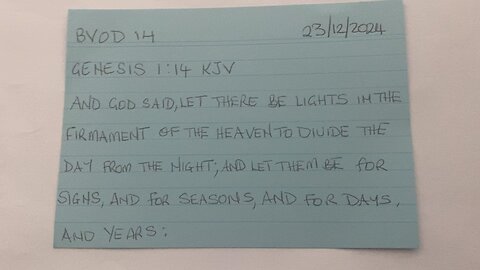 BVOD 14 23/12/2024
GENESIS 1:14 KJV
AND GOD SAID, LET THERE BE LIGHTS IN THE
FIRMAMENT OF THE HEAVEN TO DIVIDE THE
DAY FROM THE NIGHT; AND LET THEM BE FOR
SIGNS, AND FOR SEASONS, AND FOR DAYS,
AND YEARS: